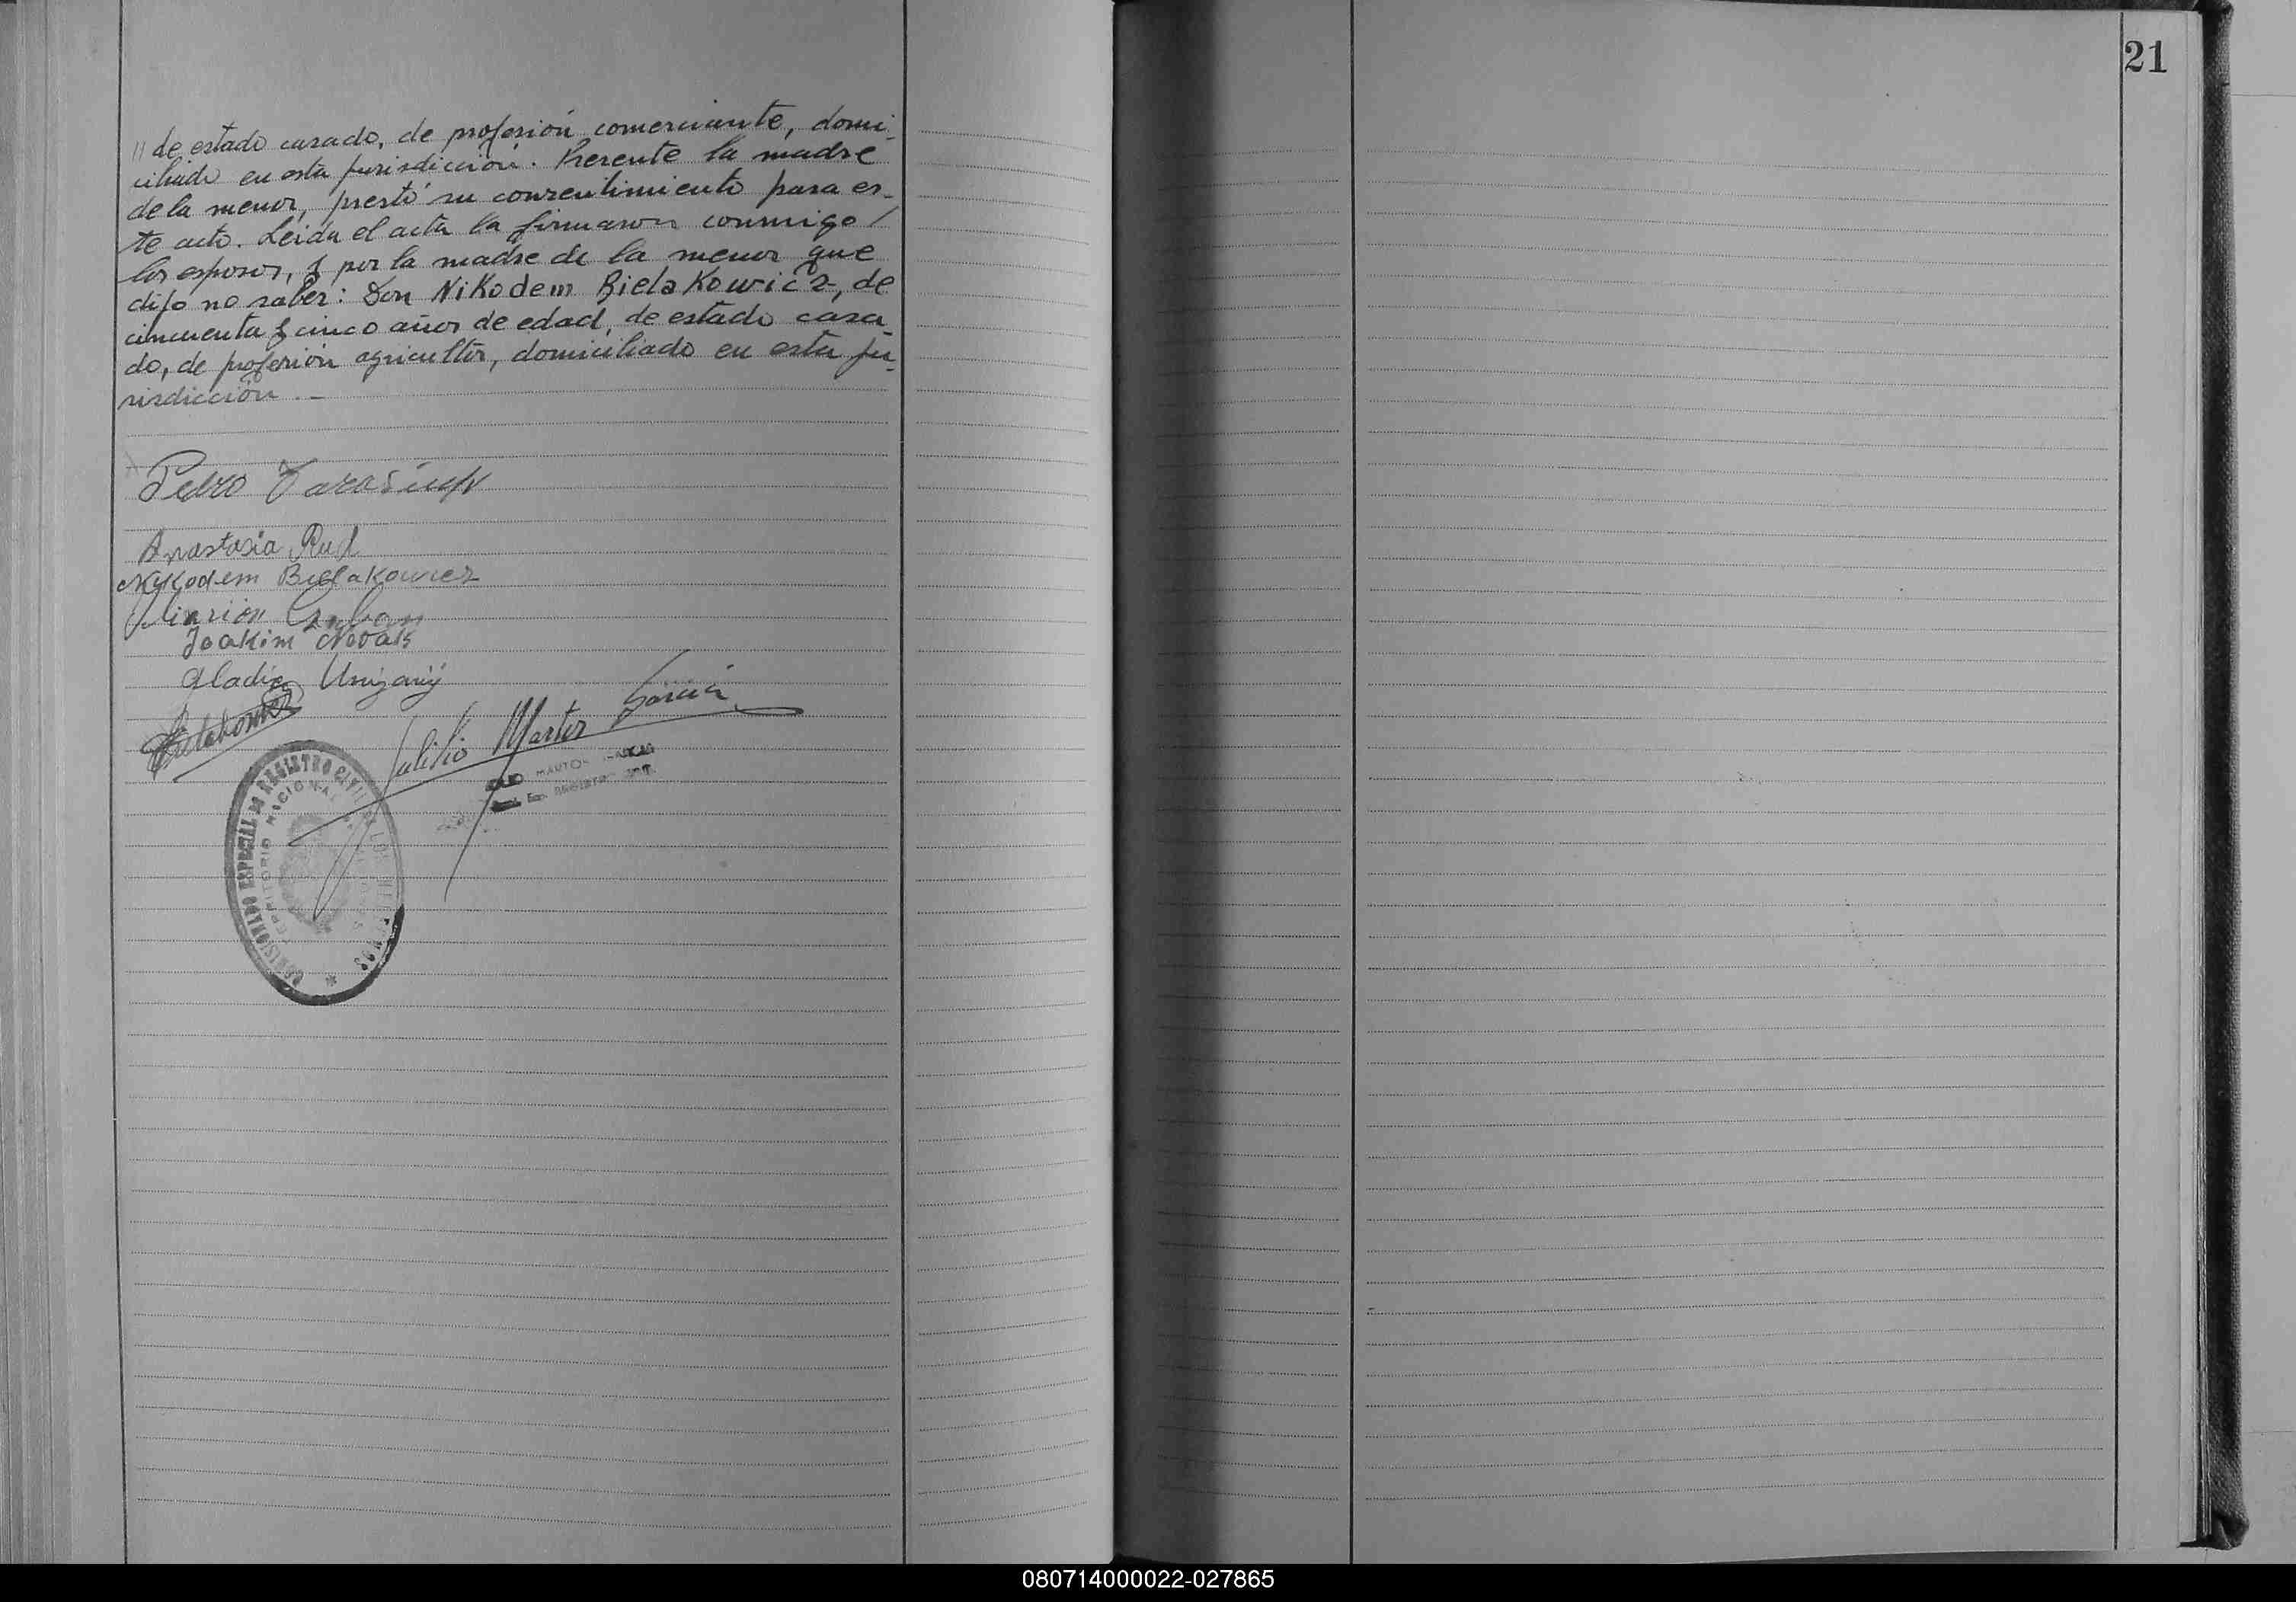 21
// de estado casado, de profesión comerciante, domi-
ciliado en esta jurisdicción. Presente la madre
de la menor, prestó su consentimiento para es-
te acto. Leida el acta la firmaron conmigo /
los esposos, y por la madre de la menor que
dijo no saber: Don Nikodem Bielakowicz, de
cincuenta y cinco años de edad, de estado casa-
do, de profesión agricultor, domiciliado en esta ju-
risdicción.—
Pedro
Anastasia Rud
Nykodem Bielakowicz
Joakim Novak
Julio García
REGISTRO CIVIL
COMISIONADO ESPECIAL DE
TERRITORIO NACIONAL
080714000022-027865